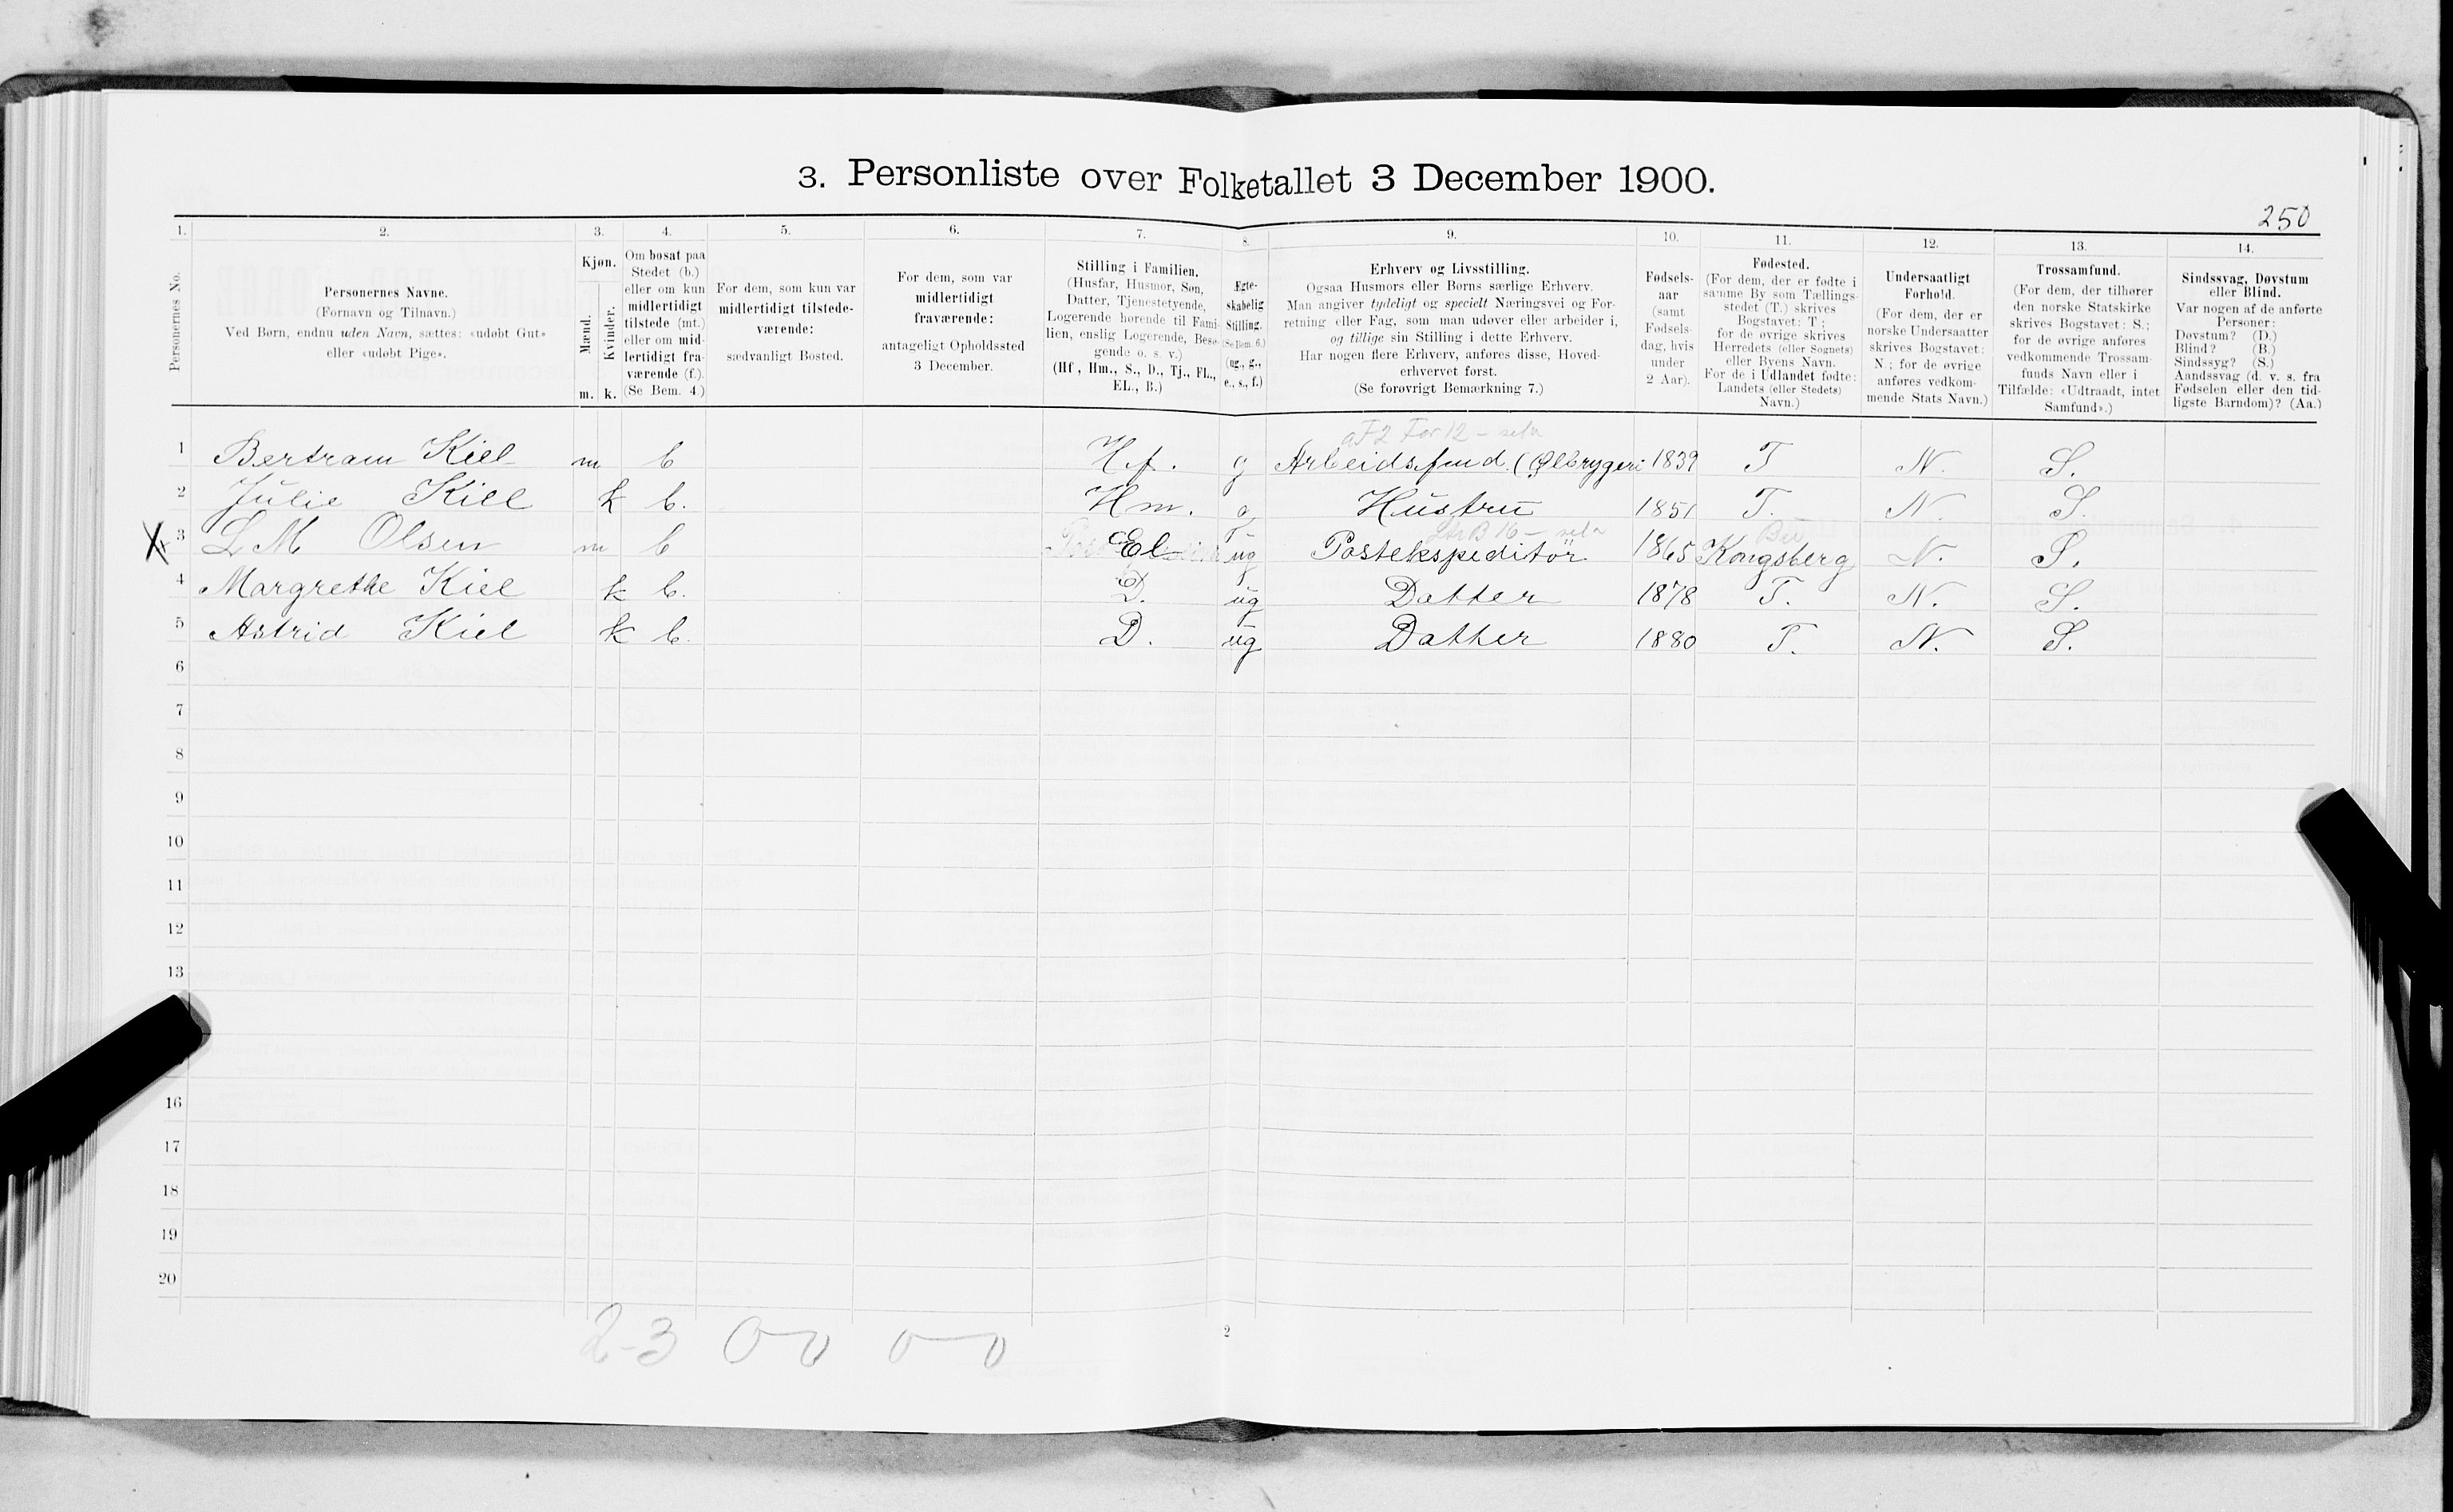 3. Personliste over Folketallet 3 December 1900.
250
1. 2. 3. 4. 5. 6. 7. 8. 9. 10. 11. 12. 13. 14.
Personernes No.
Personernes Navne.
(Fornavn og Tilnavn.)
Ved Børn, endnu uden Navn, sættes: «udøbt Gut»
eller «udøbt Pige».
Kjøn.
Mænd.
Kvinder.
m. k.
Om bosat paa
Stedet (b.)
eller om kun
midlertidigt
tilstede (mt.)
eller om mid-
lertidigt fra-
værende (f.)
(Se Bem. 4.)
For dem, som kun var
midlertidigt tilstede-
værende:
sædvanligt Bosted.
For dem, som var
midlertidigt
fraværende:
antageligt Opholdssted
3 December.
Stilling i Familien.
(Husfar, Husmor, Søn,
Datter, Tjenestetyende,
Logerende hørende til Fami-
lien, enslig Logerende, Besø-
gende o. s. v.)
(Hf, Hm., S., D., Tj., FL.,
EL., B.)
Ægte-
skabelig
Stilling.
(Se Bem. 6.)
(ug., g.,
e., s., f.)
Erhverv og Livsstilling.
Ogsaa Husmors eller Børns særlige Erhverv.
Man angiver tydeligt og specielt Næringsvei og For-
retning eller Fag, som man udøver eller arbeider i,
og tillige sin Stilling i dette Erhverv.
Har nogen flere Erhverv, anføres disse, Hoved-
erhvervet først.
(Se forøvrigt Bemærkning 7.)
Fødsels-
aar
(samt
Fødsels-
dag, hvis
under
2 Aar).
Fødested.
(For dem, der er fødte i
samme By som Tællings-
stedet (T.) skrives
Bogstavet: T;
for de øvrige skrives
Herredets (eller Sognets)
eller Byens Navn.
For de i Udlandet fødte:
Landets (eller Stedets)
Navn.)
Undersaatligt
Forhold.
(For dem, der er
norske Undersaatter
skrives Bogstavet:
N.; for de øvrige
anføres vedkom-
mende Stats Navn.)
Trossamfund.
(For dem, der tilhører
den norske Statskirke
skrives Bogstavet: S.;
for de øvrige anføres
vedkommende Trossam-
funds Navn eller i
Tilfælde: «Udtraadt, intet
Samfund».)
Sindssvag, Døvstum
eller Blind.
Var nogen af de anførte
Personer:
Døvstum? (D.)
Blind? (B.)
Sindssyg? (S.)
Aandssvag (d. v. s. fra
Fødselen eller den tid-
ligste Barndom)? (Aa.)
1 Bertram Kiel m b Hf. g Arbeidsfmd. (Ølbrygeri 1839 T N. S.
2 Julie Kiel k b. Hm. g Hustru 1851 T. N. S.
X 3 L M Olsen m b El ug Postekspeditör 1865 Kongsberg N. S.
4 Margrethe Kiel k b. D. ug Datter 1878 T. N. S.
5 Astrid Kiel k b. D. ug Datter 1880 T. N. S.
6
7
8
9
10
11
12
13
16
17
18
19
20
2-3 0-0 0-0
2